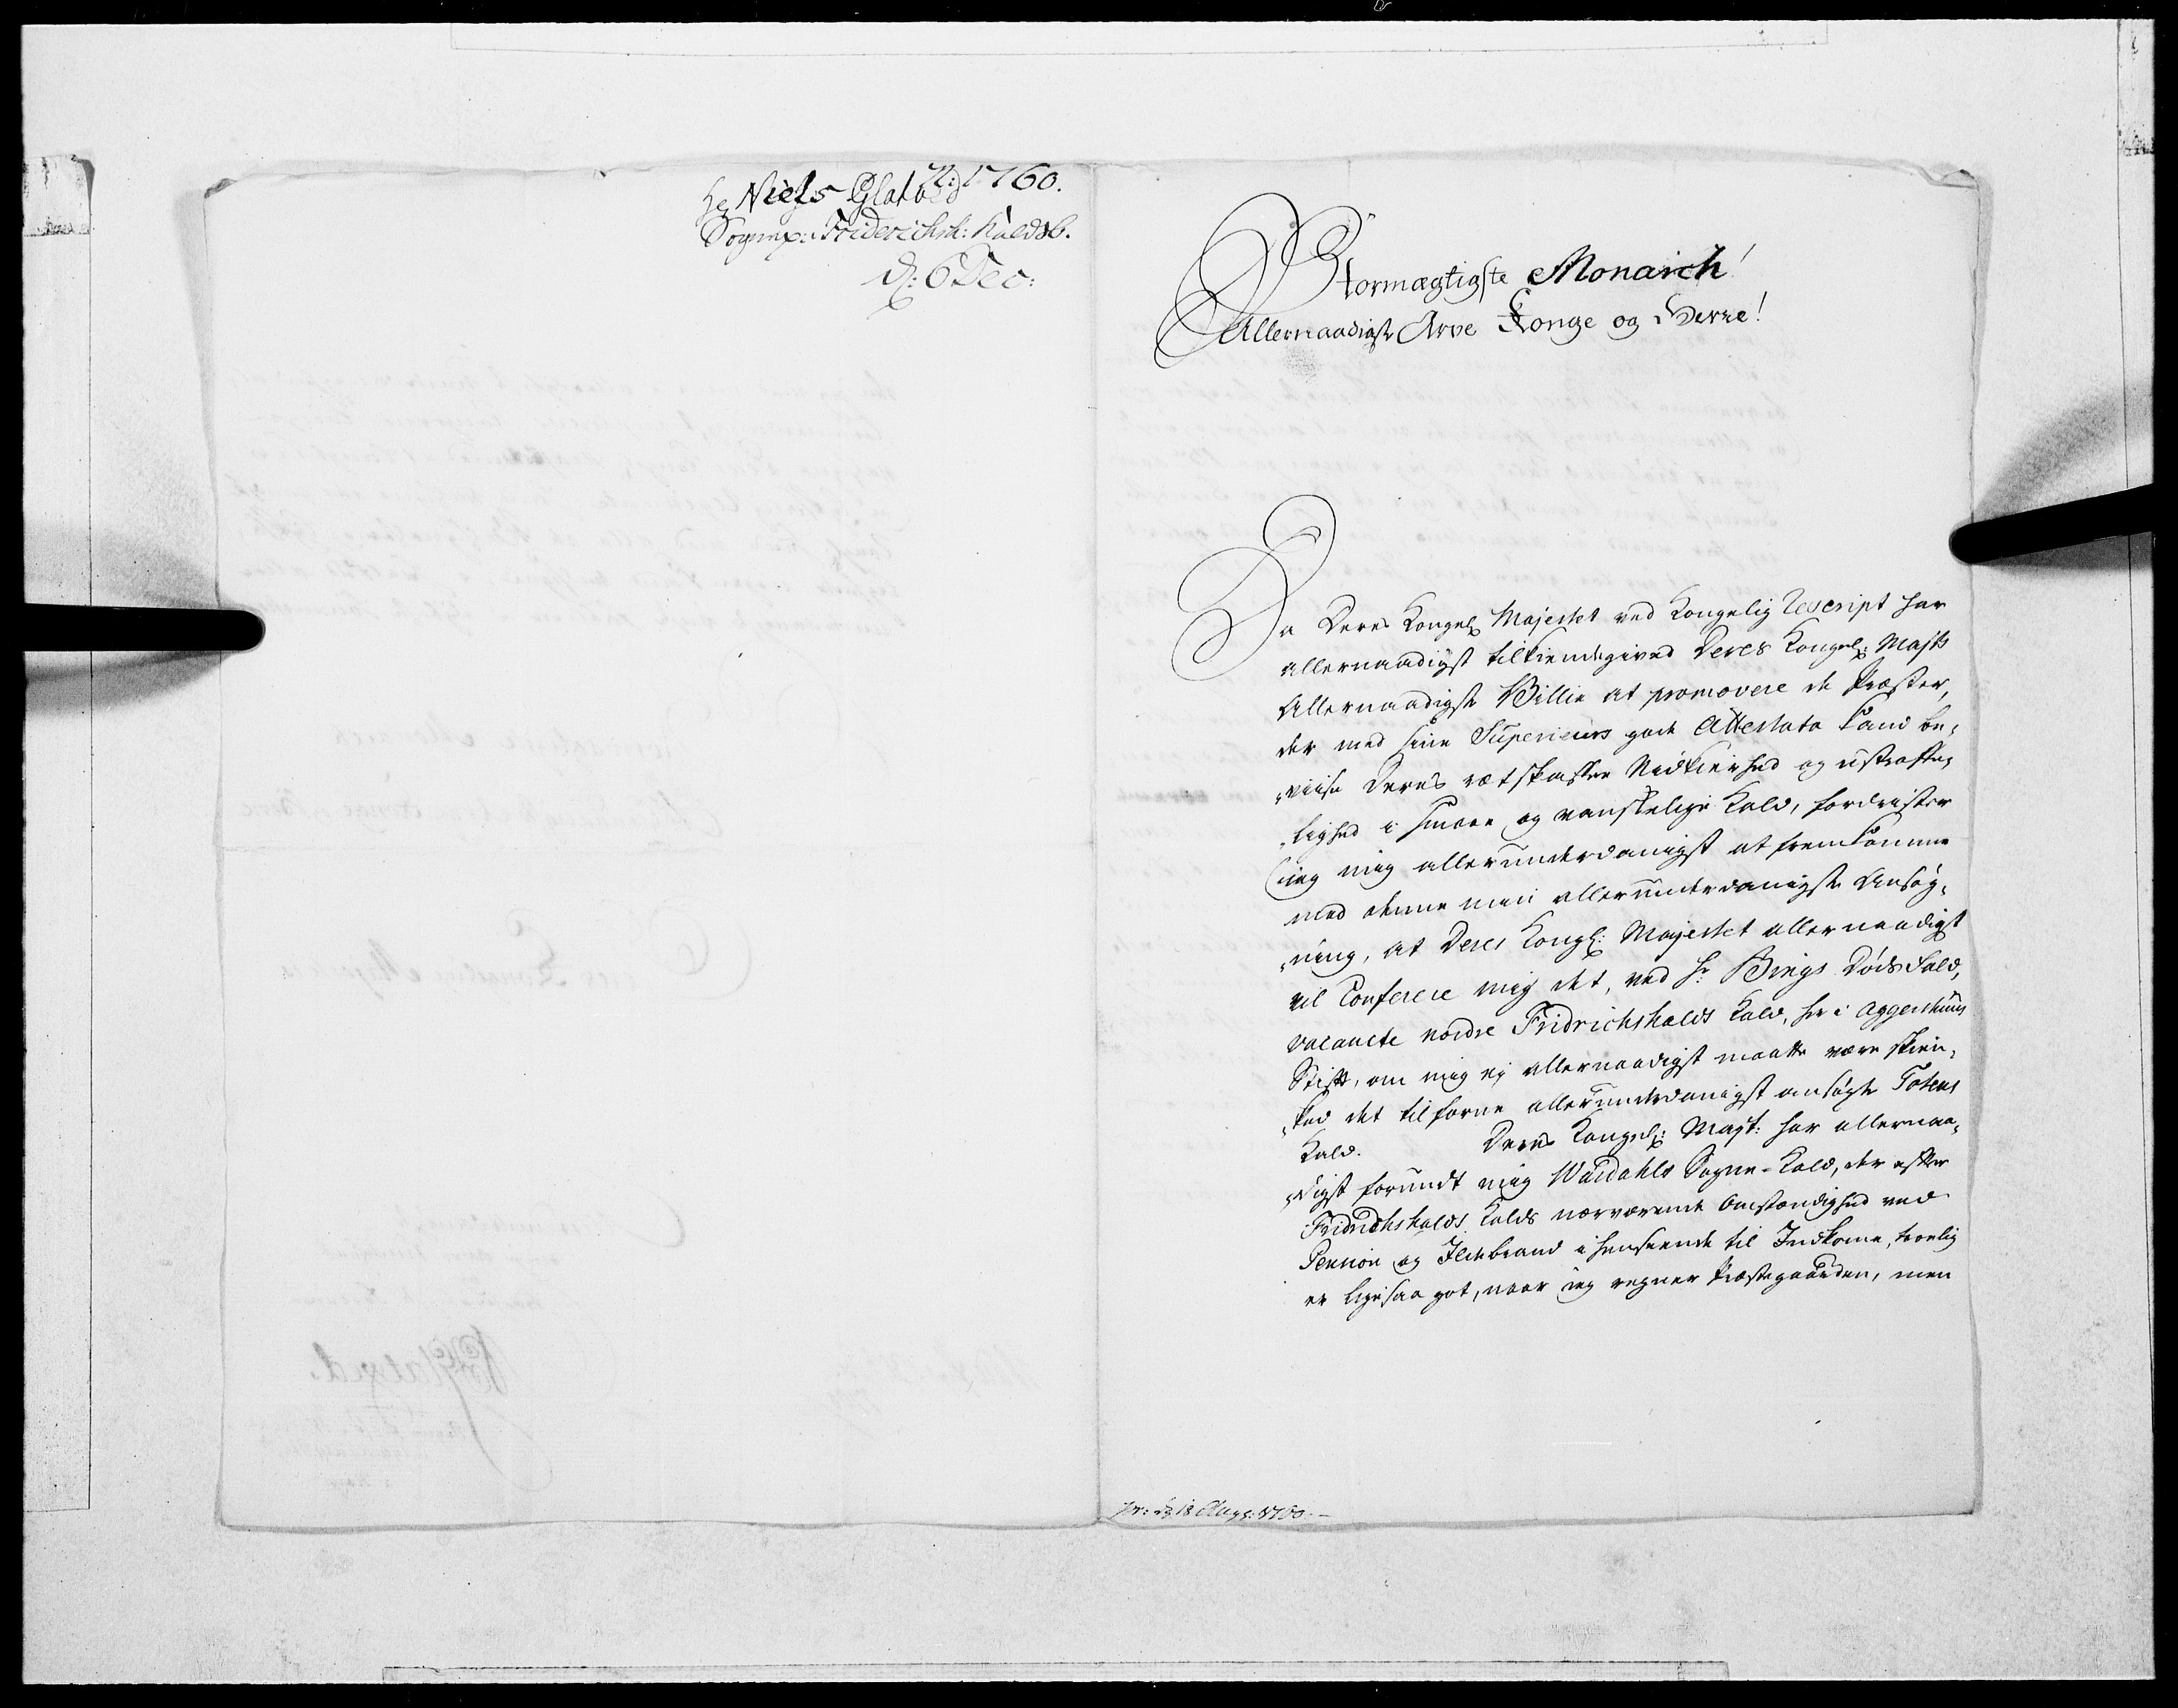 N: 1760.
Hr Niels Glatved
Sognepr: Friderichsh: Kaldsb.
d: 6 Dec:
Stormægtigste Monarch!
Allernaadigste Arve Konge og Herre!
Da Deres Kongel: Majestet ved Kongelig Rescript har
allernaadigst tilkiendegived Deres Kongel: Majts
Allernaadigste Villie at promovere de Præster,
der med sine Superieurs gode Attestata kand be-
-viise Deres rætskafne Nidkierhed og ustraffe-
-lighed i smaae og vanskelige Kald, fordrister
jeg mig allerunderdanigst at fremkomme
med denne min allerunderdanigste Ansøg-
-ning, at Deres Kongl: Majestet allernaadigst
vil Conferere mig det, ved Hr: Bings Dødsfald,
vacante nordre Fridrichshalds Kald, her i Aggershuus
Stift, om mig ej allernaadigst maatte være skien-
-ked det tilforne allerunderdanigst ansøgte Totens
Kald. Deres Kongel: Mayt: har allernaa-
-digst forundt mig Wardahls Sogne-Kald, der efter
Fridrichshalds Kalds nærværende Omstændighed ved
Pension og Ildebrand i henseende til Indkomme, troelig
er ligesaa got, naar jeg regner Præstegaarden, men
pr: d 18 Aug: 1760.